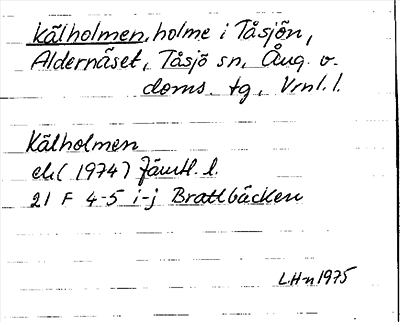 Kälholmen, holme i Tåsjön,
Aldernäset, Tåsjö sn, Ång. v.
doms. tg, Vrnl. l.
Kälholmen
ek (1974) Jämtl. l.
21 F 4-5 i-j Brattbäcken
LHn 1975